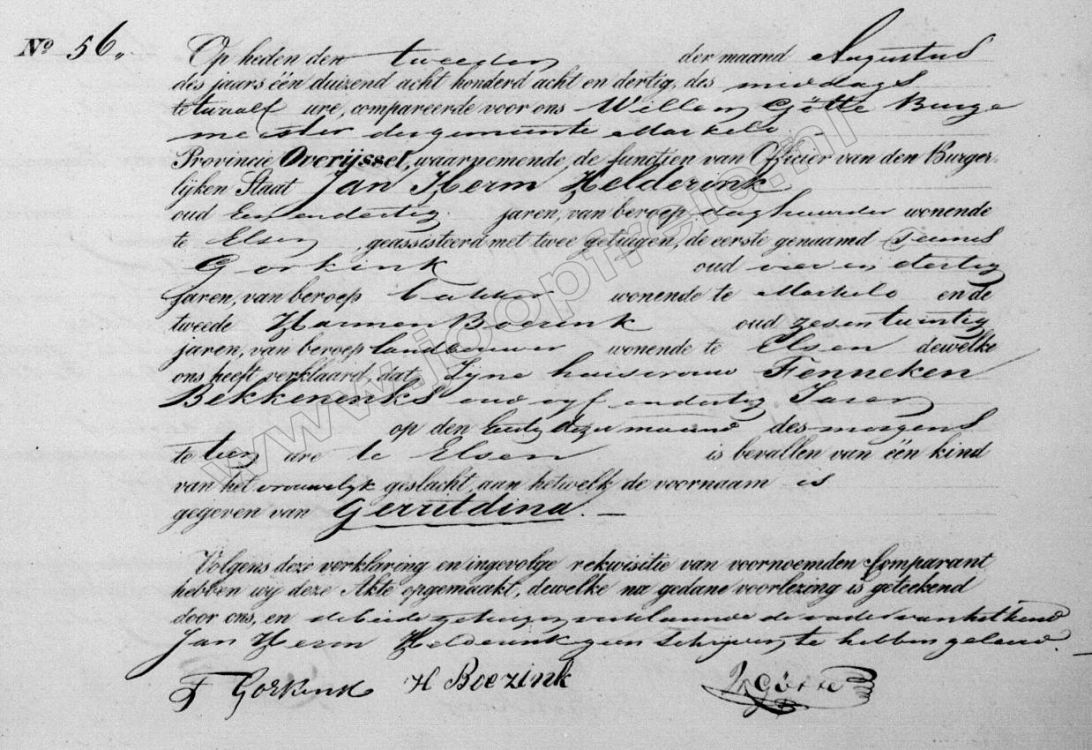 No 56.
Op heden den tweeden der maand Augustus
des jaars één duizend acht honderd acht en dertig, des middags
te twaalf ure, compareerde voor ons Willem Götte Burge
meester der gemeente Markelo
Provincie Overijssel, waarnemende de functien van Officier van den Burger-
lijken Staat Jan Herm Helderink
oud een en dertig jaren, van beroep daghuurder wonende
te Elsen, geassisteerd met twee getuigen, de eerste genaamd Teunis
Gorkink oud vier en dertig
jaren, van beroep bakker wonende te Markelo en de
tweede Harmen Boezink oud zesentwintig
jaren, van beroep landbouwer wonende te Elsen dewelke
ons heeft verklaard dat Zyne huisvrouw Fenneken
Bekkenenks oud vyf en dertig Jaren
op den dezer maand des morgens
te tien ure te Elsen is bevallen van één kind
van het vrouwelyk geslacht, aan hetwelk de voornaam is
gegeven van Gerritdina. —
Volgens deze verklaring en ingevolge rekwisitie van voornoemden Comparant
hebben wij deze Akte opgemaakt, dewelke na gedane voorlezing is geteekend
door ons, en de beide getuigen verklarende de vader van het kind
Jan Herm Helderink geen schryven te hebben geleerd.
T Gorkink H Boezink WGötte
www.jbopfrelo.nl